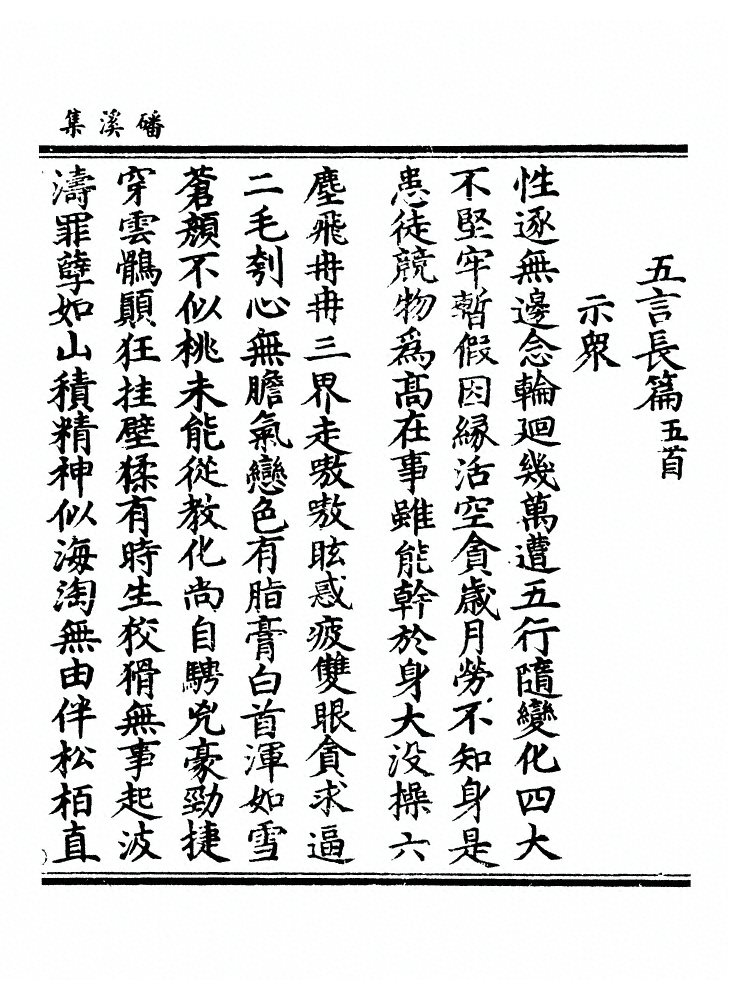 磻溪集
五言長篇五首
示衆
性逐無邊念輪廻幾萬遭五行隨變化四大
不堅牢暫假因緣活空貪歲月勞不知身是
患徒競物爲高在事雖能幹於身大没操六
塵飛冉冉三界走嗷嗷眩惑疲雙眼貪求逼
二毛刳心無膽氣戀色有脂膏白首渾如雪
蒼顏不似桃未能從教化尚自騁兇豪勁捷
穿雲鶻顚狂挂壁猱有時生狡猾無事起波
濤罪孽如山積精神似海淘無由伴松栢直